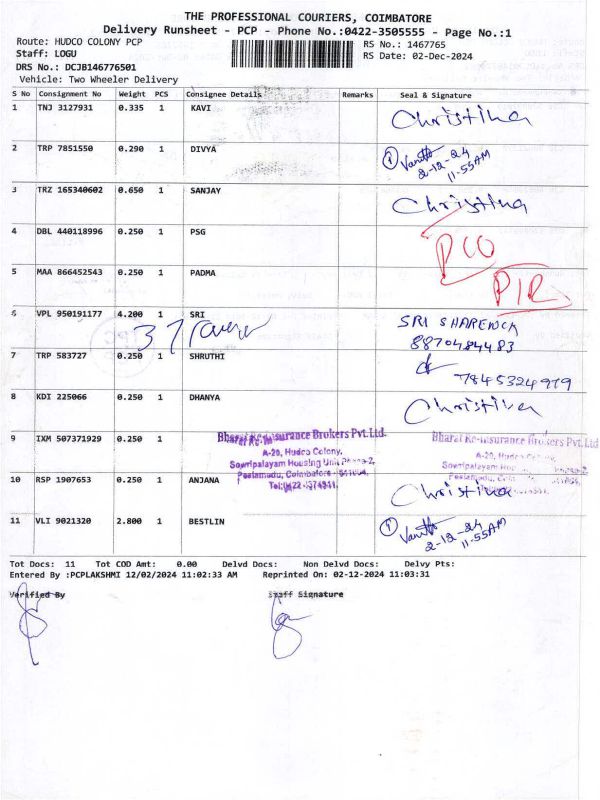 THE PROFESSIONAL COURIERS, COIMBATORE
Delivery Runsheet - PCP - Phone No.:0422-3505555 - Page No.:1
Route: HUDCO COLONY PCP RS No.: 1467765
Staff: LOGU RS Date: 02-Dec-2024
DRS No.: DCJB146776501
Vehicle: Two Wheeler Delivery
S No Consignment No Weight PCS Consignee Details Remarks Seal & Signature
1 TNJ 3127931 0.335 1 KAVI Christina
2 TRP 7851550 0.290 1 DIVYA
2-12-24
11-55AM
3 TRZ 165340602 0.650 1 SANJAY Christina
4 DBL 440118996 0.250 1 PSG
5 MAA 866452543 0.250 1 PADMA
6 VPL 950191177 4.200 1 SRI SRI SHARENCK
8870484483
7 TRP 583727 0.250 1 SHRUTHI
7845324979
8 KDI 225066 0.250 1 DHANYA Christina
9 IXM 507371929 0.250 1 Bharat Re-Insurance Brokers Pvt.Ltd. Bharat Re-Insurance Brokers Pvt.Ltd
A-20, Hudco Colony, A-20,
Sowripalayam Housing Unit Phase-2, Sowripalayam
Peelamedu, Coimbatore Peelamedu,
10 RSP 1907653 0.250 1 ANJANA Christina
11 VLI 9021320 2.800 1 BESTLIN
2-12-24
11-55AM
Tot Docs: 11 Tot COD Amt: 0.00 Delvd Docs: Non Delvd Docs: Delvy Pts:
Entered By :PCPLAKSHMI 12/02/2024 11:02:33 AM Reprinted On: 02-12-2024 11:03:31
Verified By Staff Signature